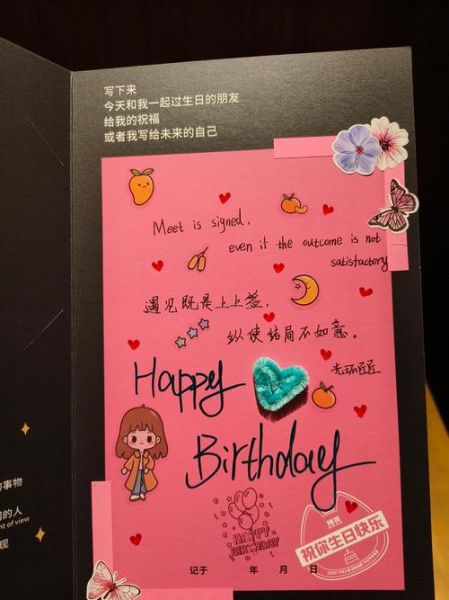 写下来
今天和我一起过生日的朋友
给我的祝福
或者我写给未来的自己
Meet is signed,
even if the outcome is not
satisfactory
遇见既是上上签,
纵使结局不如意。
Happy
Birthday
HAPPY
BIRTHDAY
祝你生日快乐
记于 年 月 日
的事物
的人
nt of view
现